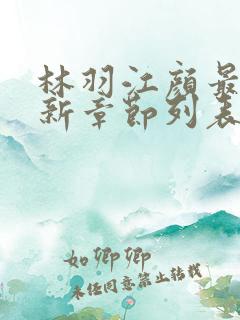 林羽江颜最
新章节列表
如卿卿
未经同意禁止转载